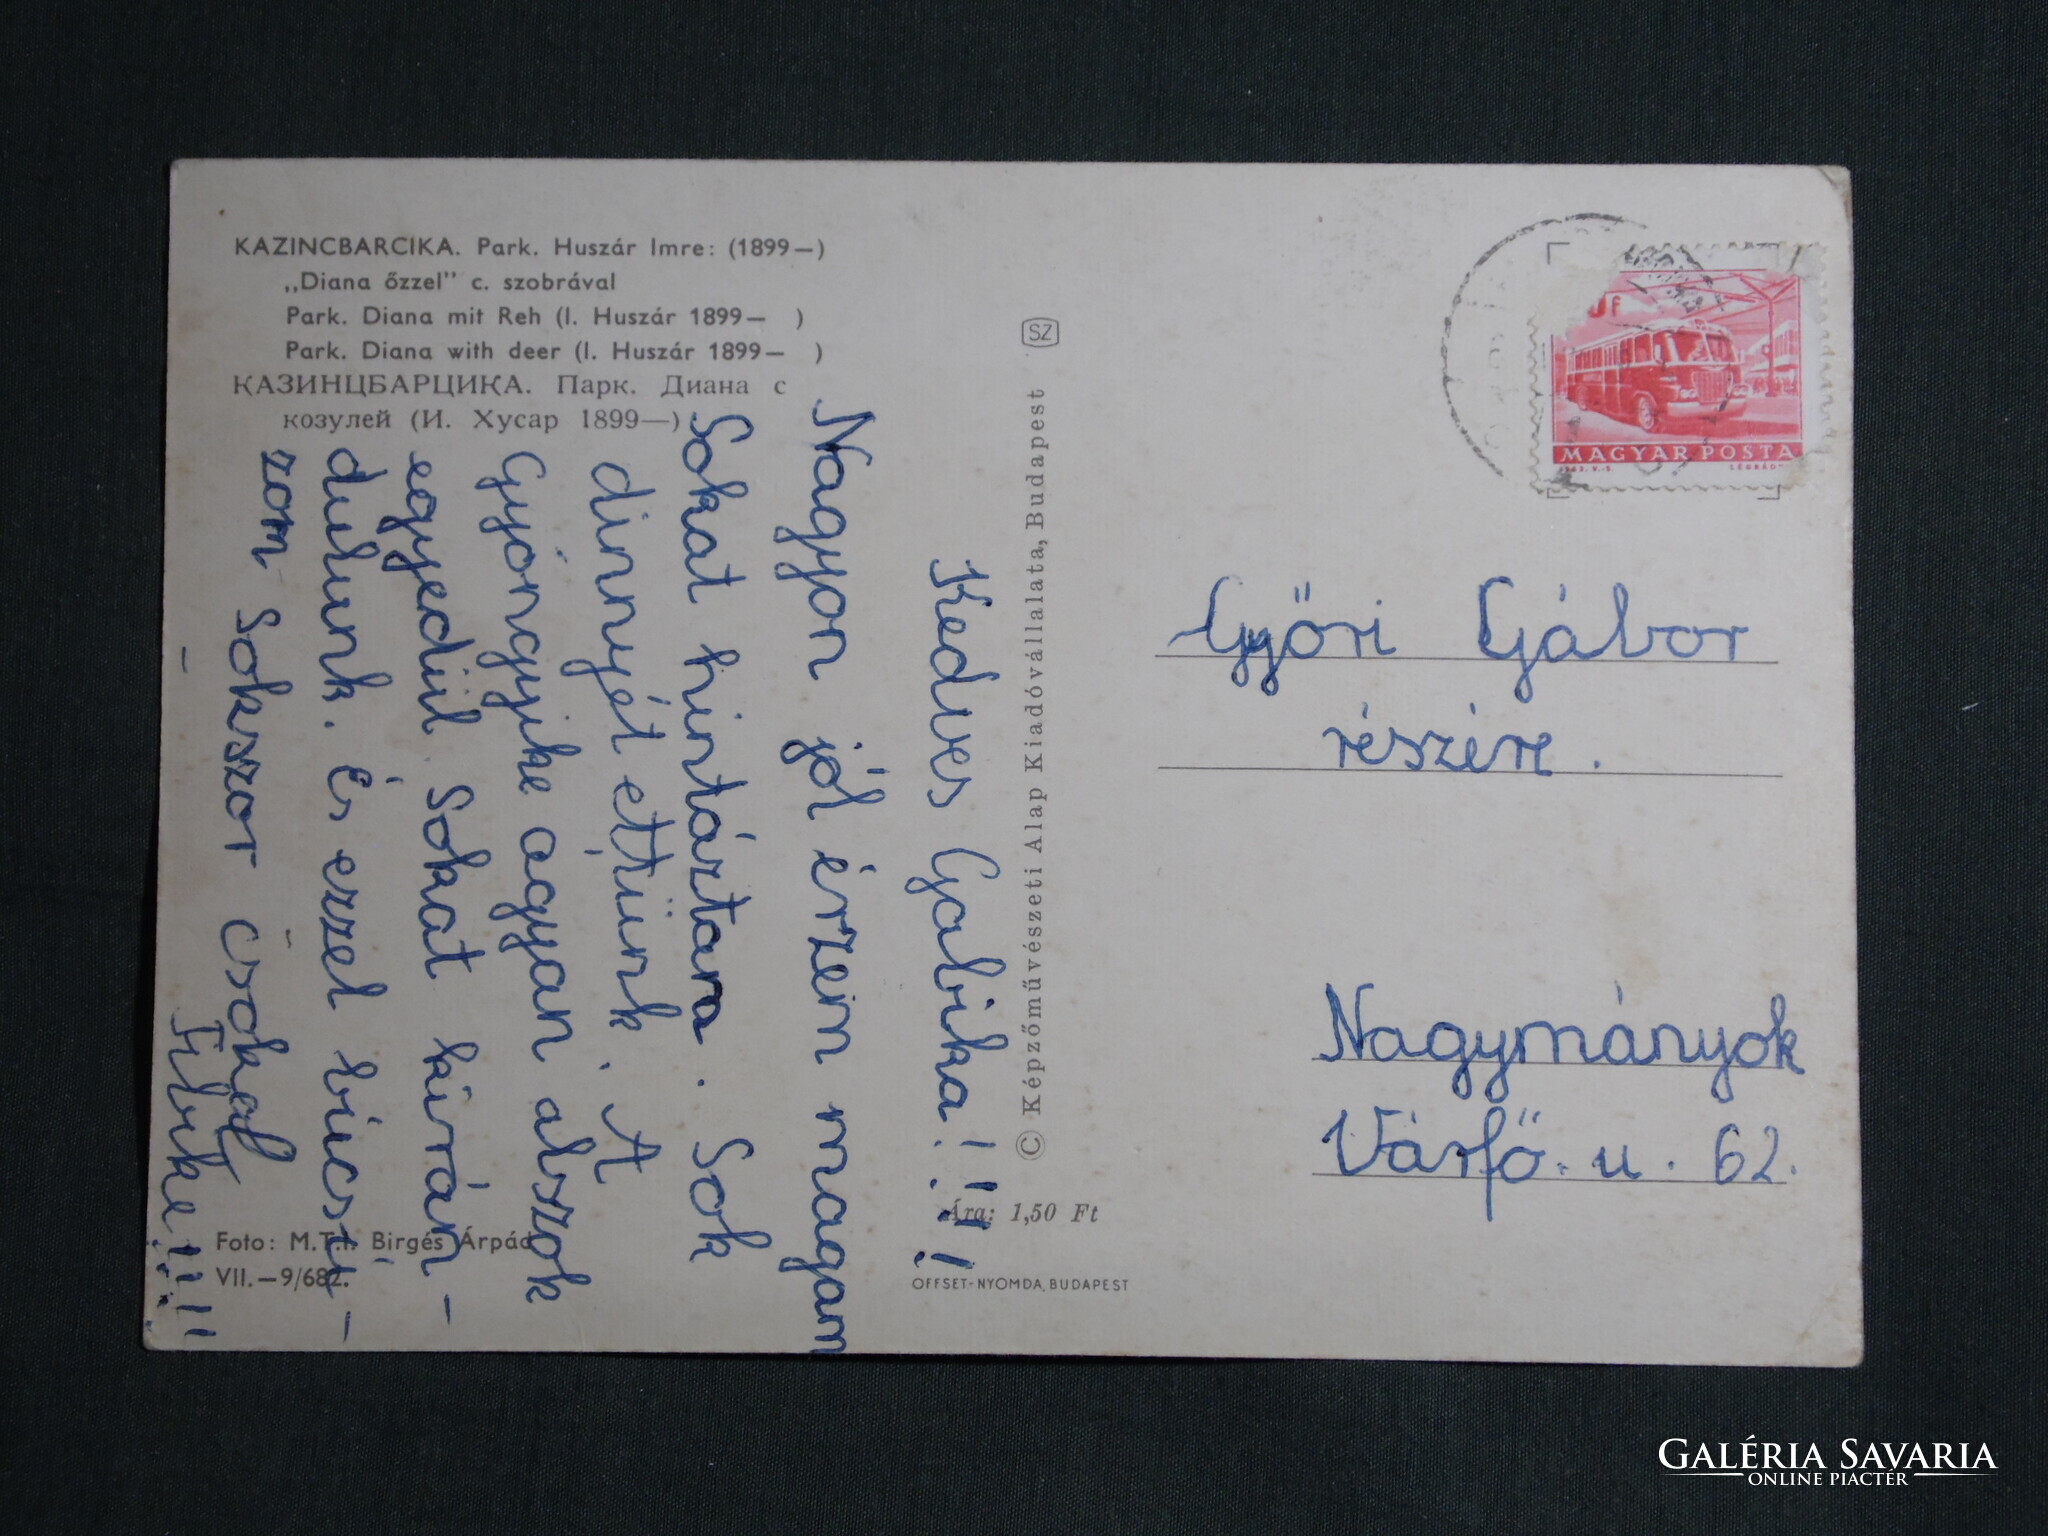 KAZINCBARCIKA. Park. Huszár Imre: (1899—)
„Diana őzzel" c. szobrával
Park. Diana mit Reh (I. Huszár 1899— )
Park. Diana with deer (I. Huszár 1899— )
КАЗИНЦБАРЦИКА. Парк. Диана с
козулей (И. Хусар 1899—)
Kedves Gabika!!!!
Nagyon jól érzem magam
Sokat hintáztam. Sok
dinnyét ettünk. A
Gyöngyike agyan alszok
egyedül Sokat kirán-
dulunk. És ezzel búcsú-
zom Sokszor Csókol
Tibike!!!!
Foto: M.T.I. Birgés Árpád
VII.—9/682.
SZ
© Képzőművészeti Alap Kiadóvállalata, Budapest
Ára: 1,50 Ft
OFFSET-NYOMDA, BUDAPEST
MAGYAR POSTA
1963. V.-S. LÉGRÁDY
Győri Gábor
részére.
Nagymányok
Várfő. u. 62.
GALÉRIA SAVARIA
ONLINE PIACTÉR